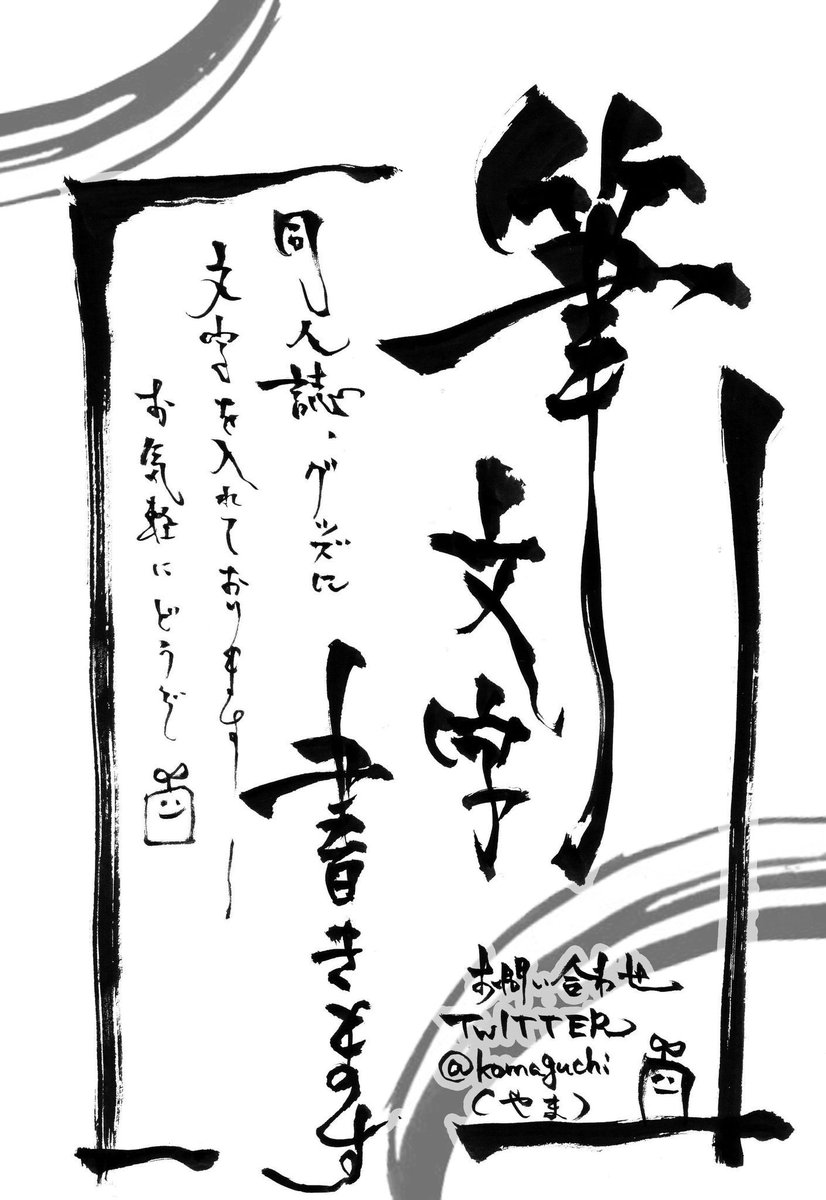 筆文字
書きます
同人誌・グッズに
文字を入れております
お気軽にどうぞ
お問い合わせ
TWITTER
@komaguchi
(やま)